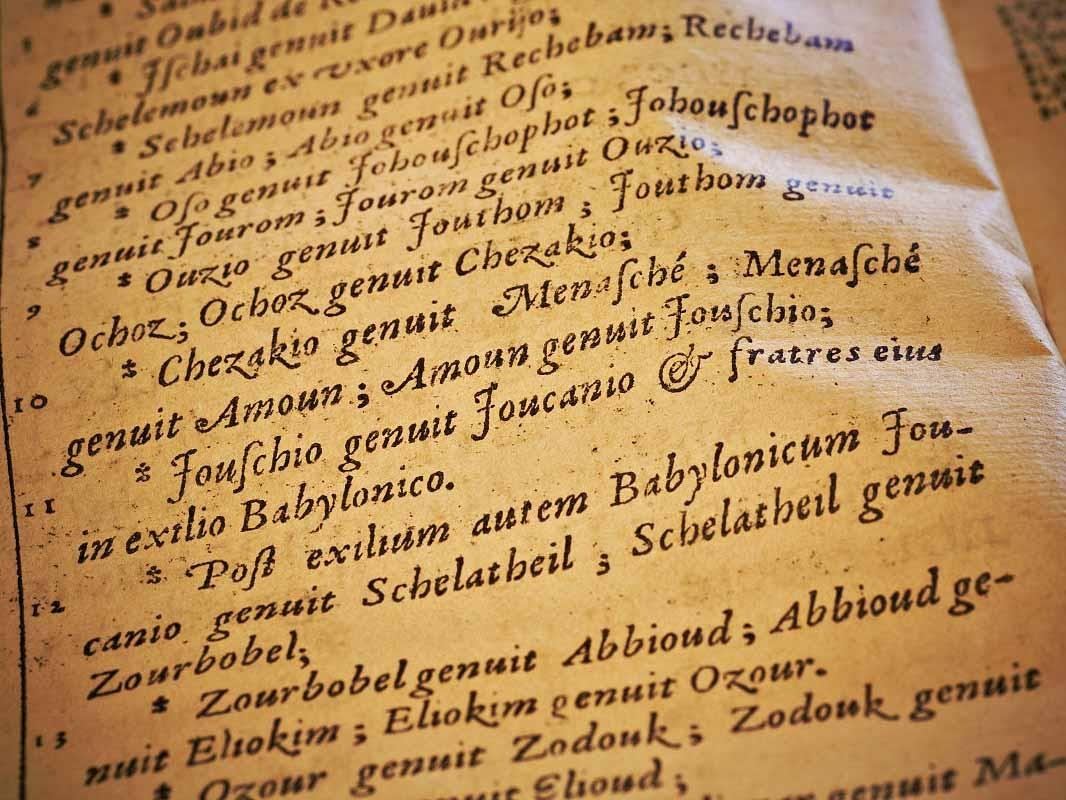 genuit Oubid de
6 * Jſchai genuit Dauid
Schelemoun ex vxore Ourijo;
7 * Schelemoun genuit Rechebam; Rechebam
genuit Abio; Abio genuit Oſo;
8 * Oſo genuit Johouſchophot; Johouſchophot
genuit Jourom; Jourom genuit Ouzio;
9 * Ouzio genuit Jouthom; Jouthom genuit
Ochoz; Ochoz genuit Chezakio;
10 * Chezakio genuit Menaſché; Menaſché
genuit Amoun; Amoun genuit Jouſchio;
11 * Jouſchio genuit Joucanio & fratres eius
in exilio Babylonico.
12 * Poſt exilium autem Babylonicum Jou-
canio genuit Schelatheil; Schelatheil genuit
Zourbobel;
13 * Zourbobel genuit Abbioud; Abbioud ge-
nuit Eliokim; Eliokim genuit Ozour.
* Ozour genuit Zodouk; Zodouk genuit
Elioud; genuit Ma-